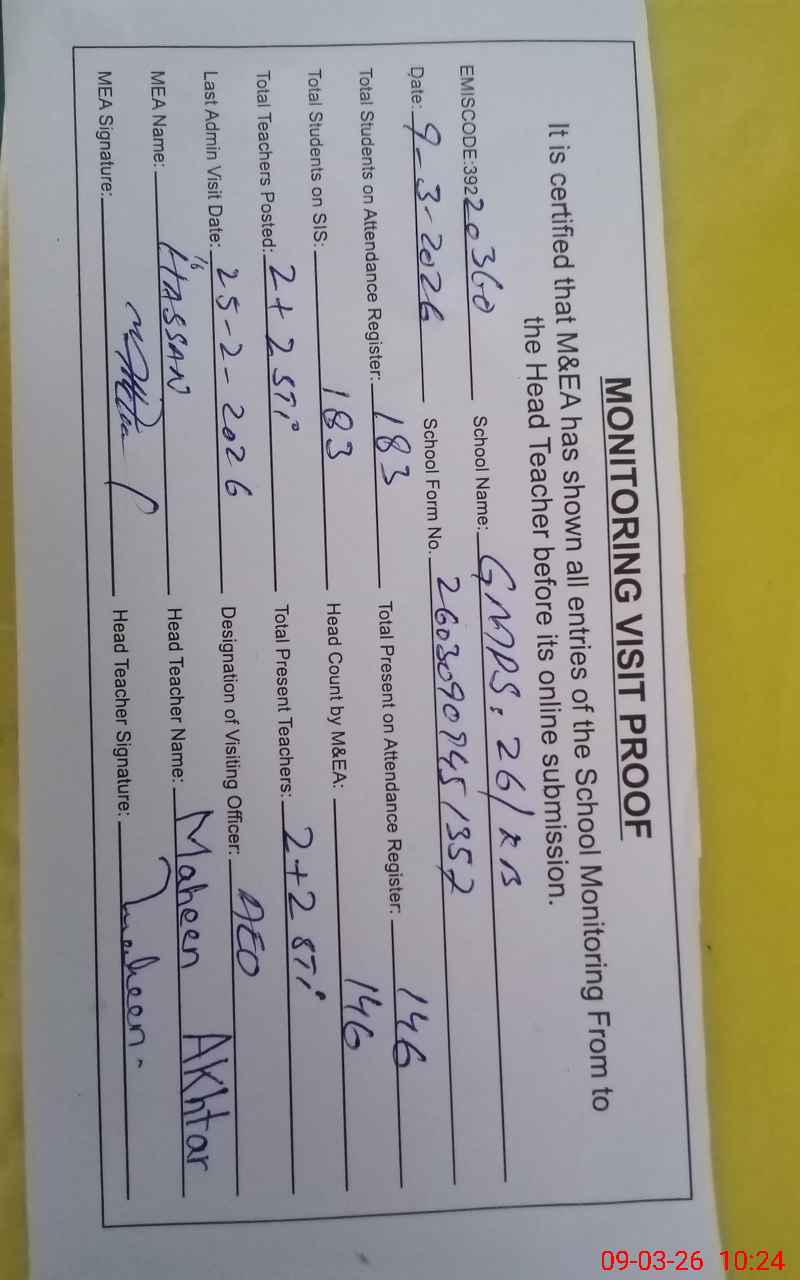 MONITORING VISIT PROOF
It is certified that M&EA has shown all entries of the School Monitoring From to
the Head Teacher before its online submission.
EMISCODE:39220360 School Name: GMPS. 26/KB
Date: 9-3-2026 School Form No. 26030909451352
Total Students on Attendance Register: 183 Total Present on Attendance Register: 146
Total Students on SIS: 183 Head Count by M&EA: 146
Total Teachers Posted: 2+2 STi Total Present Teachers: 2+2 STi
Last Admin Visit Date: 25-2-2026 Designation of Visiting Officer: AEO
MEA Name: HASSAN Head Teacher Name: Maheen Akhtar
MEA Signature: Head Teacher Signature: Maheen
09-03-26 10:24